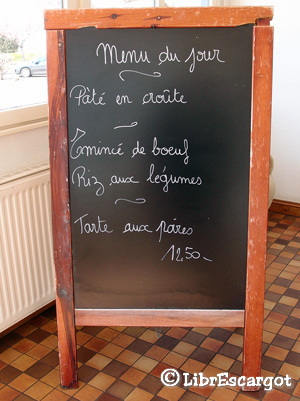 Menu du jour
Pâté en croûte
Emincé de boeuf
Riz aux légumes
Tarte aux poires
12,50.-
©LibrEscargot